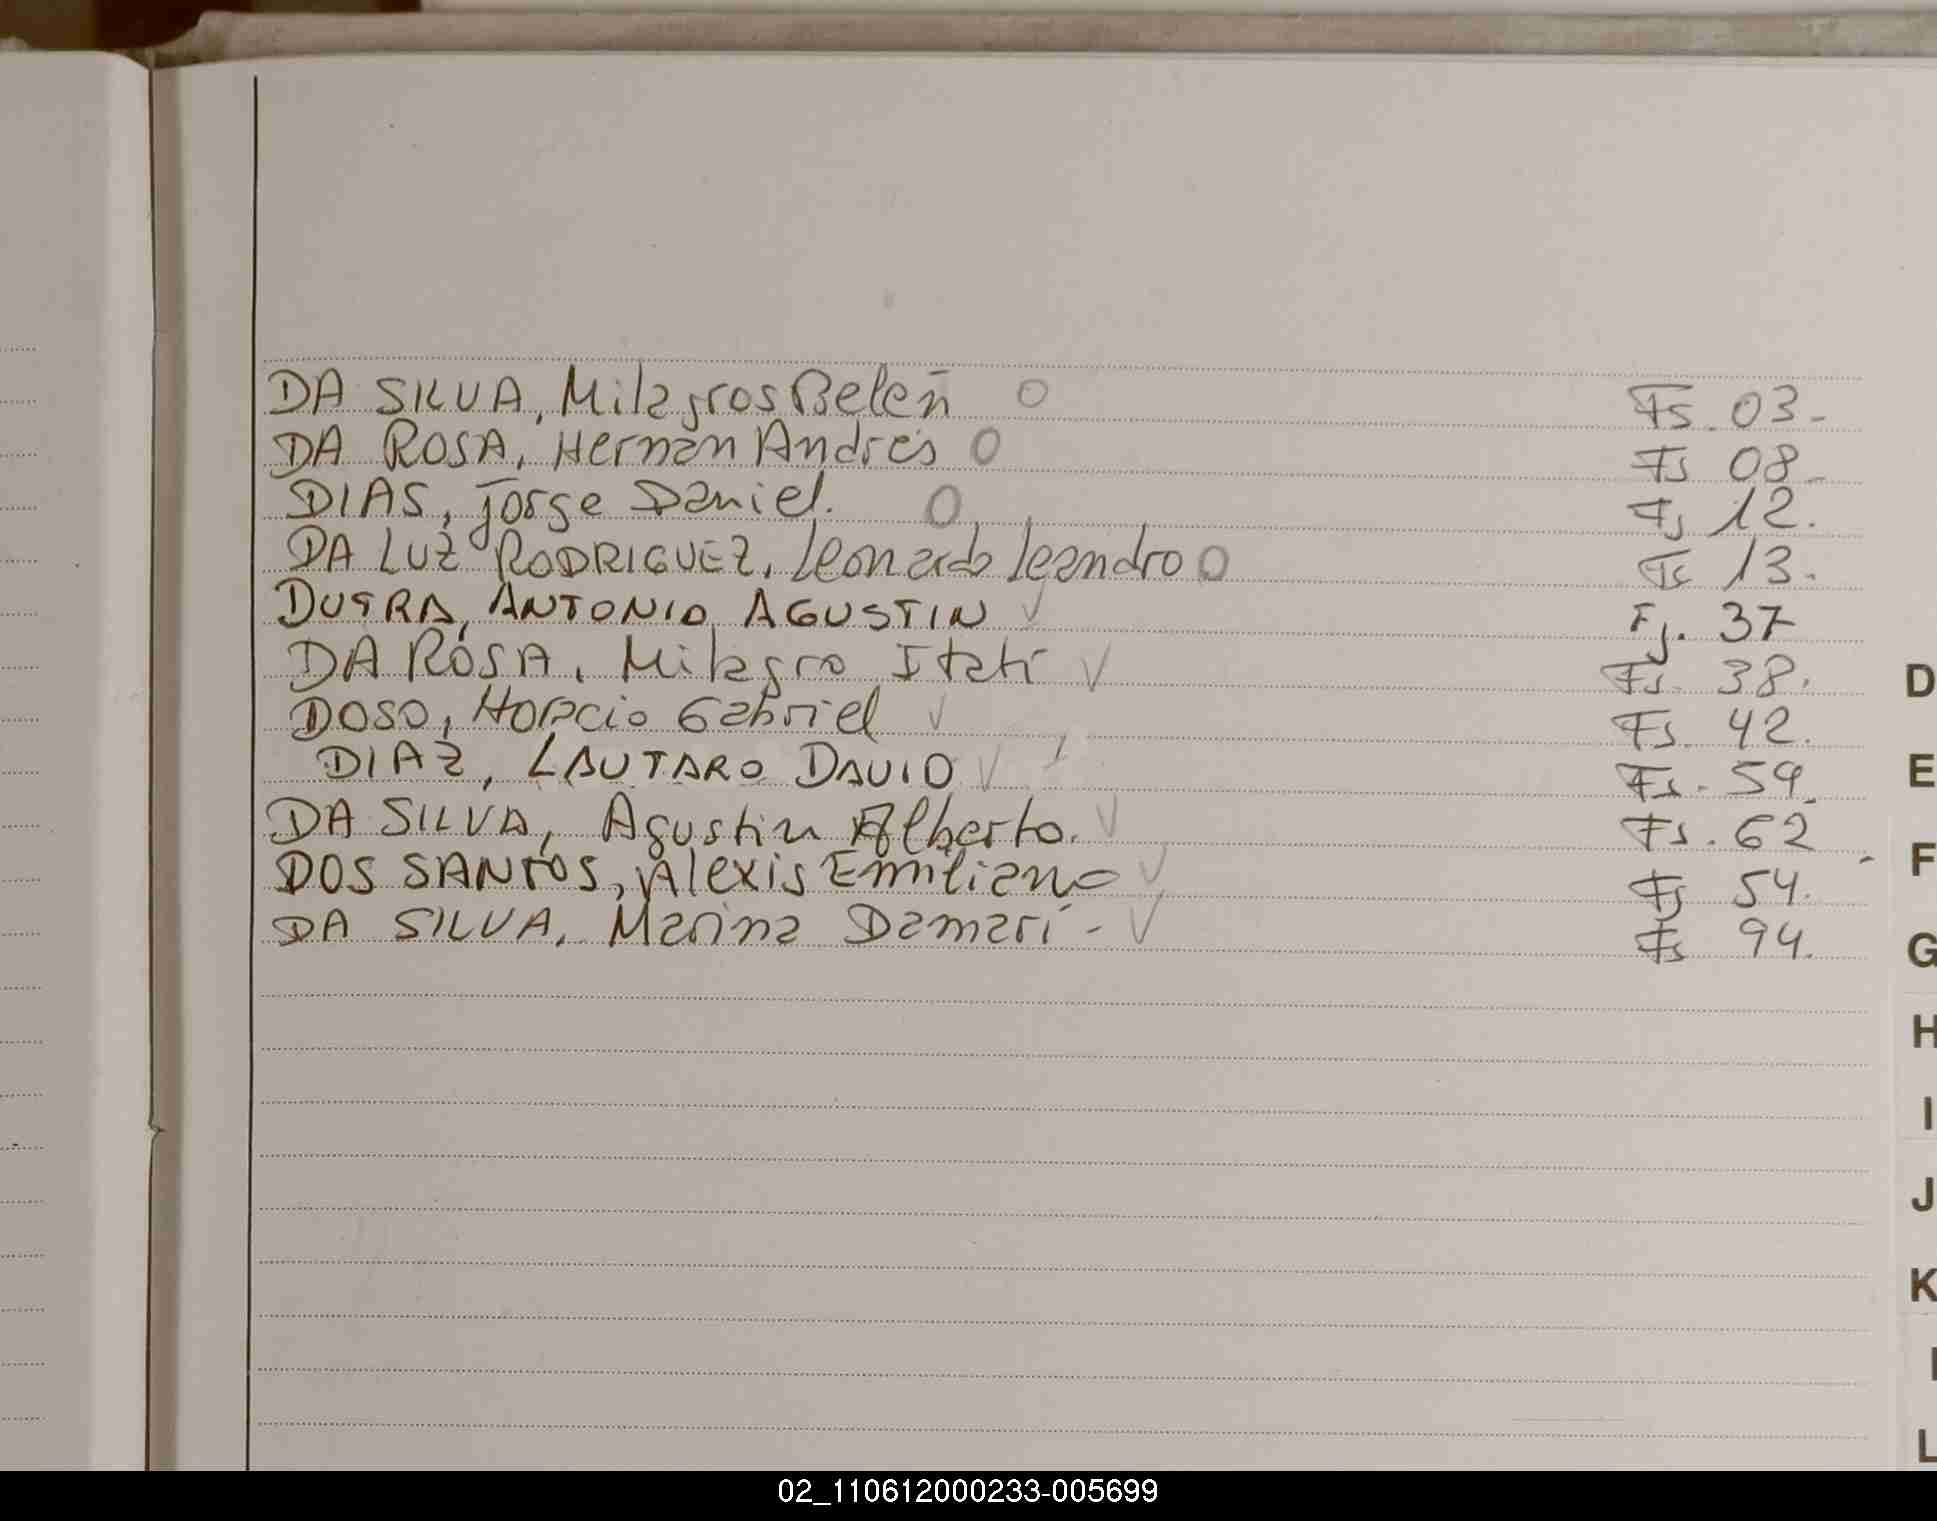 DA SILVA, Milagros Belén O Fs. 03.-
DA ROSA, Hernan Andrés O Fs 08.-
DIAS, Jorge Daniel. O Fs 12.
DA LUZ RODRIGUEZ, Leonardo Leandro O Fs 13.
DUTRA, ANTONIO AGUSTIN √ Fj. 37
DA ROSA, Milagro Itatí √ Fs. 38.
DOSO, Horacio Gabriel √ Fs. 42.
DIAZ, LAUTARO DAVID √ Fs. 59.
DA SILVA, Agustin Alberto. √ Fs. 62
DOS SANTOS, Alexis Emiliano √ Fs 54.
DA SILVA, Marina Damarí - √ Fs 94.
D
E
F
G
H
I
J
K
L
02_110612000233-005699